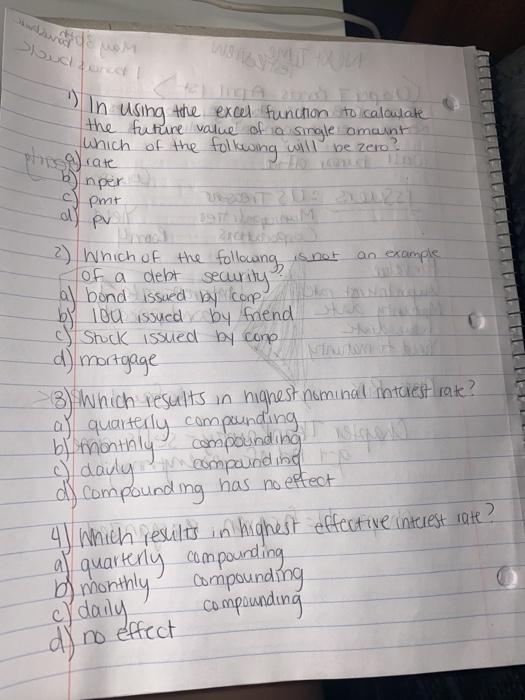 1) In using the excel function to calculate
the future value of a single amount
which of the following will be zero?
a) rate
b) nper
c) pmt
d) pv
2) Which of the following is not an example
of a debt security?
a) bond issued by corp
b) IOU issued by friend
c) Stock issued by corp
d) mortgage
3) Which results in highest nominal interest rate?
a) quarterly compounding
b) monthly compounding
c) daily compounding
d) compounding has no effect
4) Which results in highest effective interest rate?
a) quarterly compounding
b) monthly compounding
c) daily compounding
d) no effect